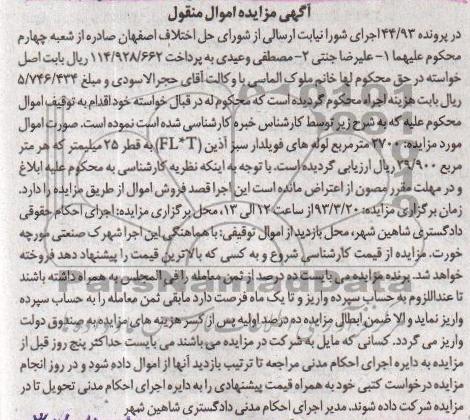 آگهی مزایده اموال منقول
در پرونده ۴۴/۹۳ اجرای شورا نیابت ارسالی از شورای حل اختلاف اصفهان صادره از شعبه چهارم
محکوم علیهما ۱- علیرضا جنتی ۲- مصطفی وعیدی به پرداخت ۱۱۴/۹۲۸/۶۶۲ ریال بابت اصل
خواسته در حق محکوم لها خانم ملوک الماسی با وکالت آقای حجرالاسودی و مبلغ ۵/۷۴۶/۴۳۴
ریال بابت هزینه اجراء محکوم گردیده است که محکوم له در قبال خواسته خود اقدام به توقیف اموال
محکوم علیه که به شرح زیر توسط کارشناس خبره کارشناسی شده است نموده است. صورت اموال
مورد مزایده: ۲۷۰۰ مترمربع لوله های فویلدار سبز آذین (FL*T) به قطر ۲۵ میلیمتر که هر متر
مربع ۲۹/۹۰۰ ریال ارزیابی گردیده است. با توجه به اینکه نظریه کارشناسی به محکوم علیه ابلاغ
و در مهلت مقرر مصون از اعتراض مانده است این اجرا قصد فروش اموال از طریق مزایده را دارد.
زمان برگزاری مزایده: ۹۳/۳/۲۰ از ساعت ۱۲ الی ۱۳، محل برگزاری مزایده: اجرای احکام حقوقی
دادگستری شاهین شهر، محل بازدید از اموال توقیفی: با هماهنگی این اجرا شهرک صنعتی مورچه
خورت. مزایده از قیمت کارشناسی شروع و به کسی که بالاترین قیمت را پیشنهاد دهد فروخته
خواهد شد. برنده مزایده می بایست ده درصد از ثمن معامله را فی المجلس به همراه داشته باشند
تا عنداللزوم به حساب سپرده واریز و تا یک ماه فرصت دارد مابقی ثمن معامله را به حساب سپرده
واریز نماید و الا ضمن ابطال مزایده ده درصد اولیه پس از کسر هزینه های مزایده به صندوق دولت
واریز می گردد. کسانی که مایل به شرکت در مزایده می باشند می بایست حداکثر پنج روز قبل از
مزایده به دایره اجرای احکام مدنی مراجعه تا ترتیب بازدید آنها از اموال داده شود و در روز انجام
مزایده درخواست کتبی خود به همراه قیمت پیشنهادی را به دایره اجرای احکام مدنی تحویل تا در
مزایده شرکت داده شوند. مدیر اجرای احکام مدنی دادگستری شاهین شهر
ParsNamadData